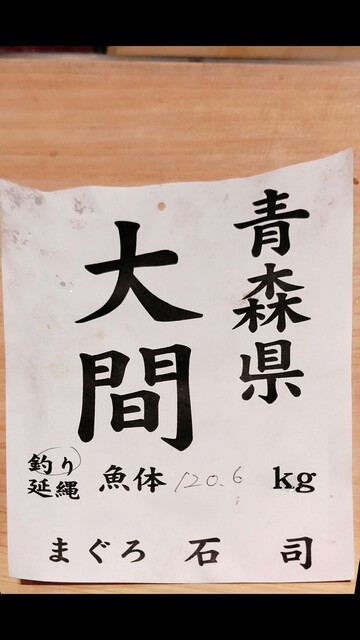 青森県
大間
釣り
延縄
魚体 120.6 kg
まぐろ 石司